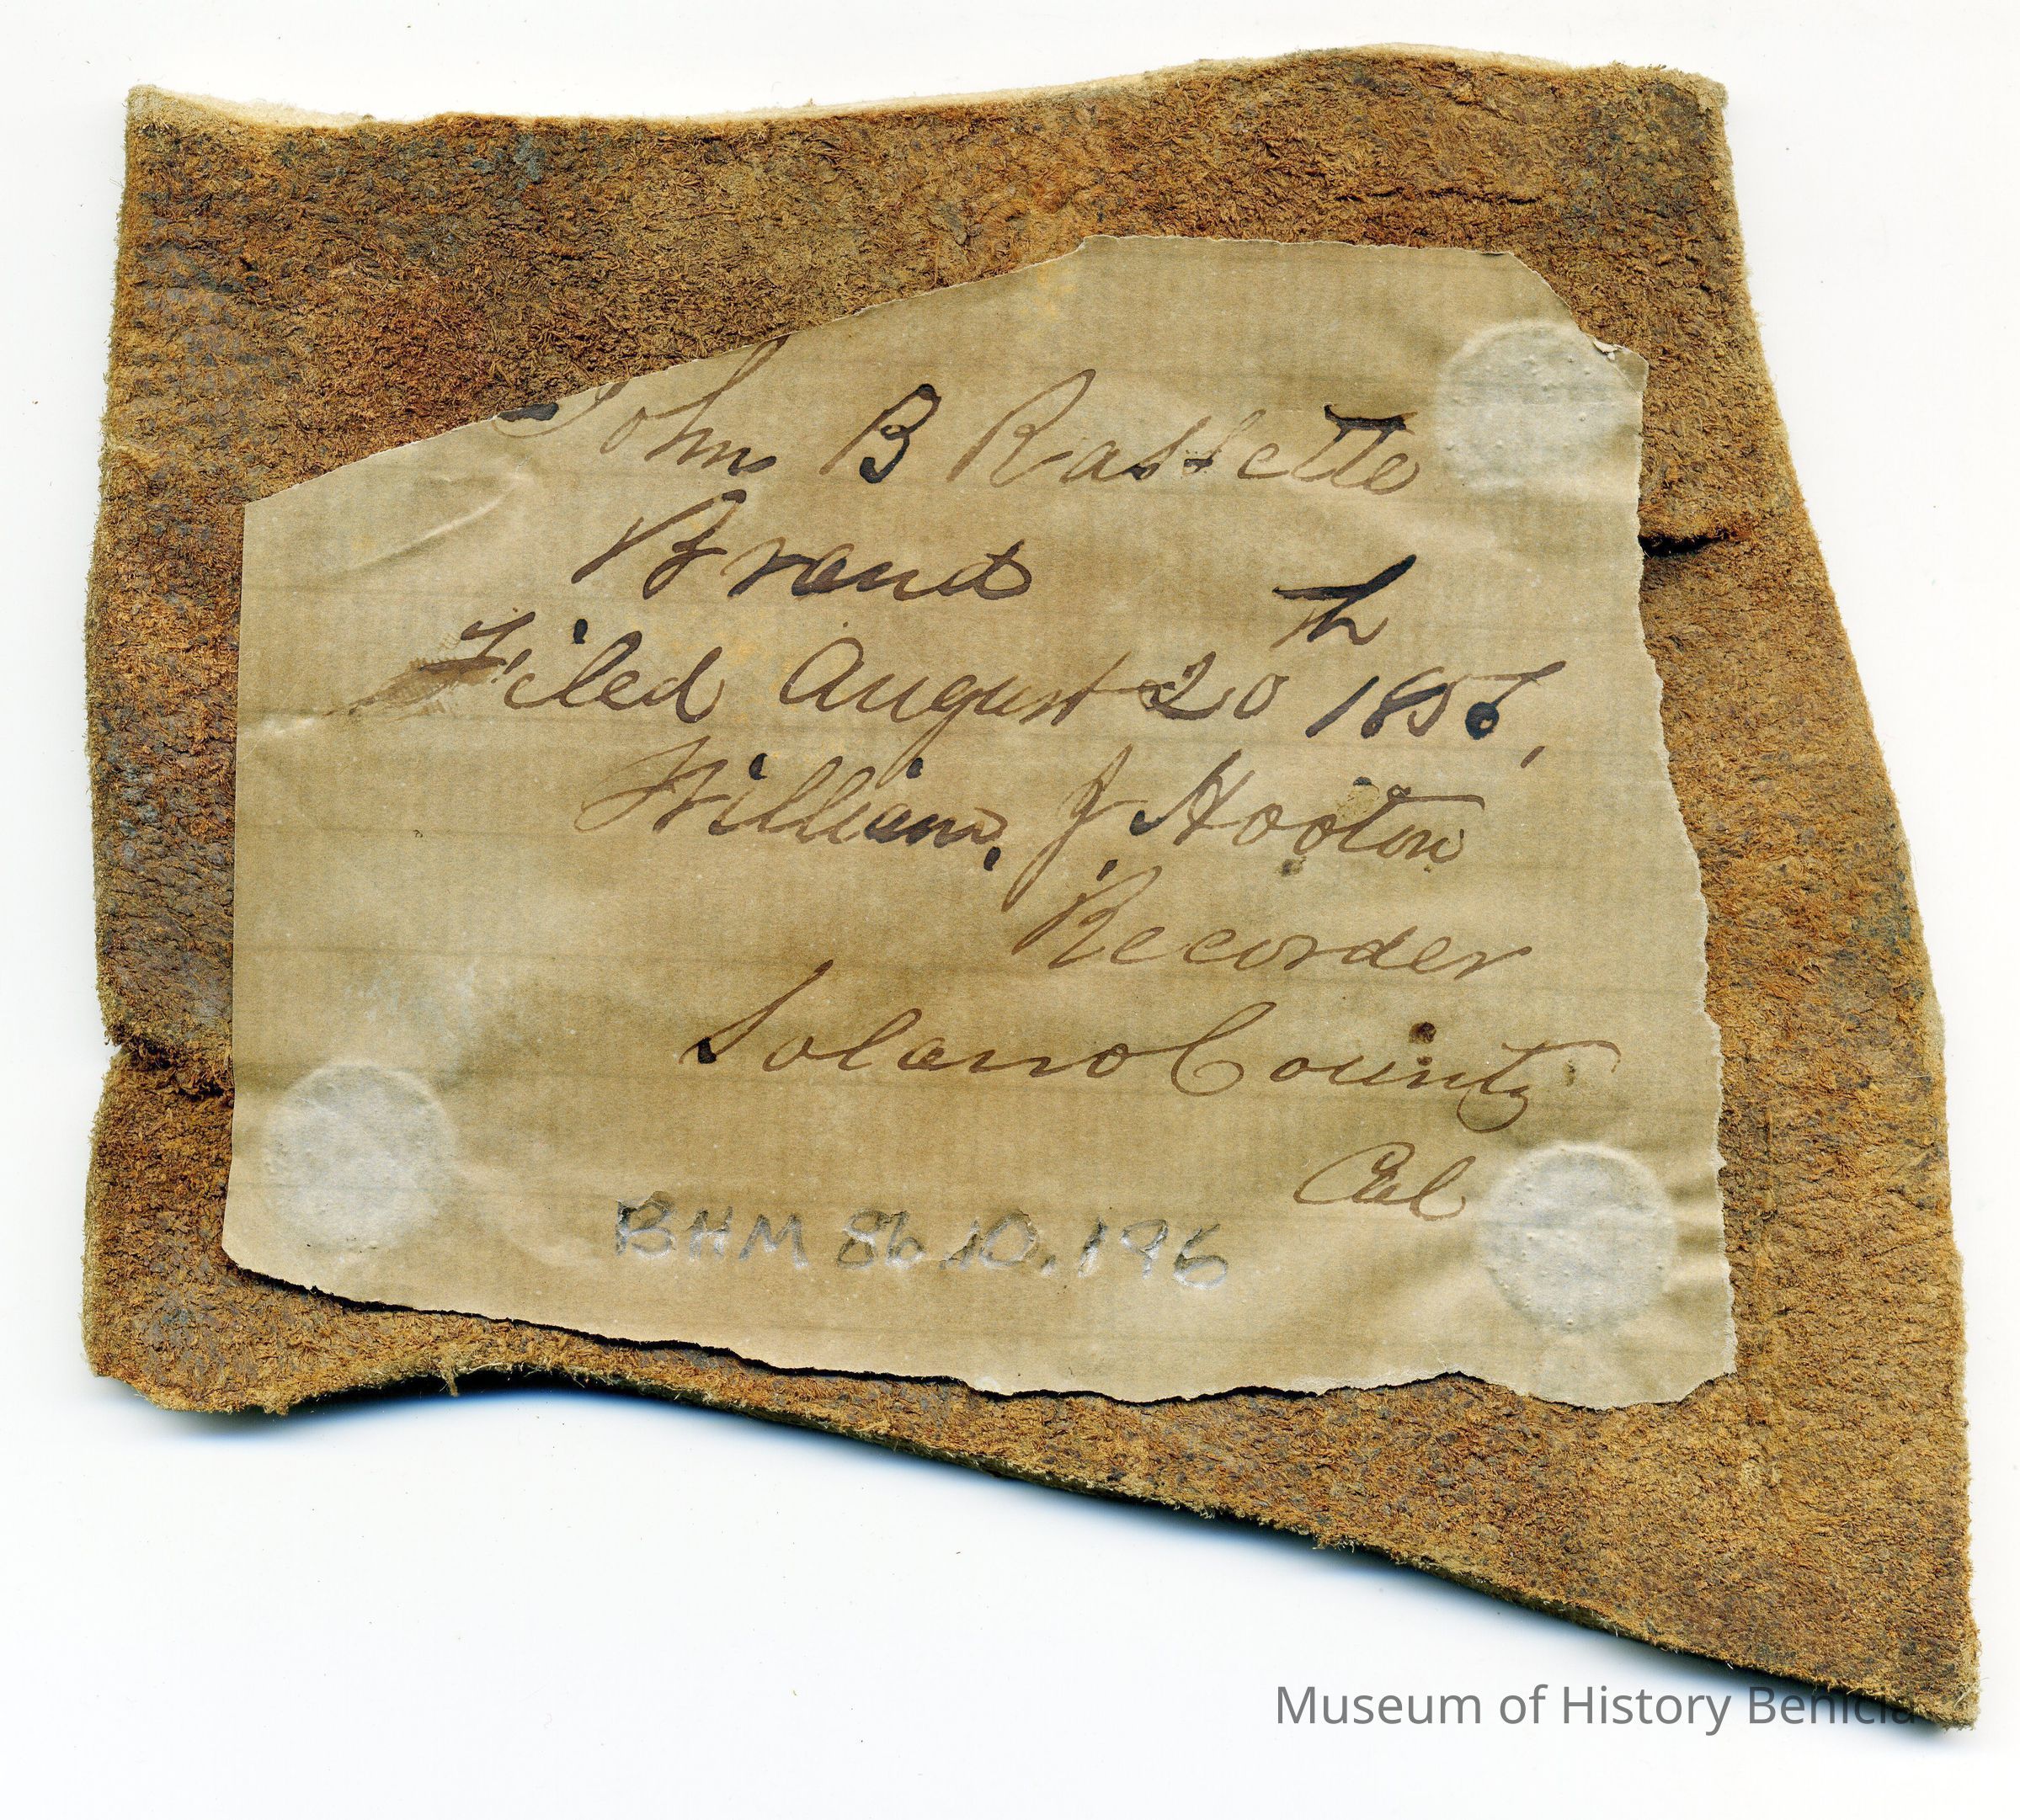 John B Rassette
Brand
Filed August 20th 1856,
William, J Hooton
Recorder
Solano County
Cal
BHM 86.10.196
Museum of History Benicia